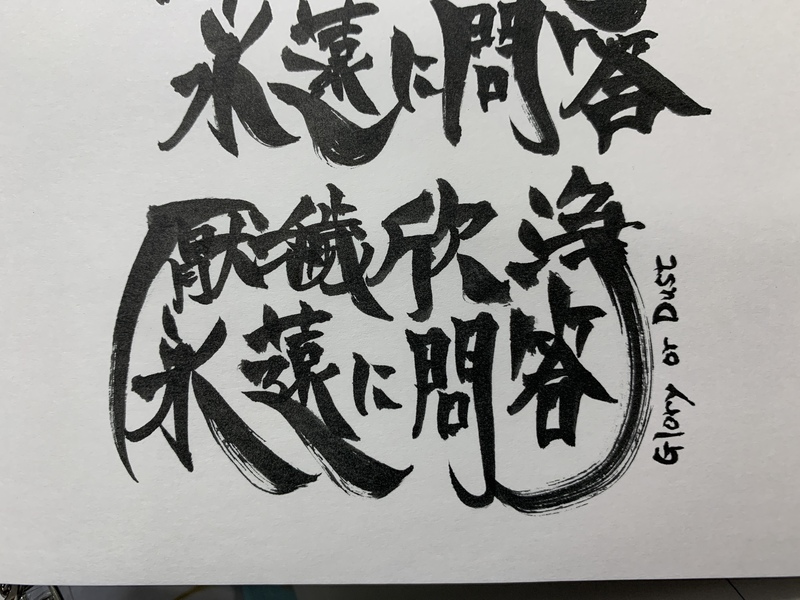 永遠に問答
厭穢欣浄
永遠に問答
Glory or Dust